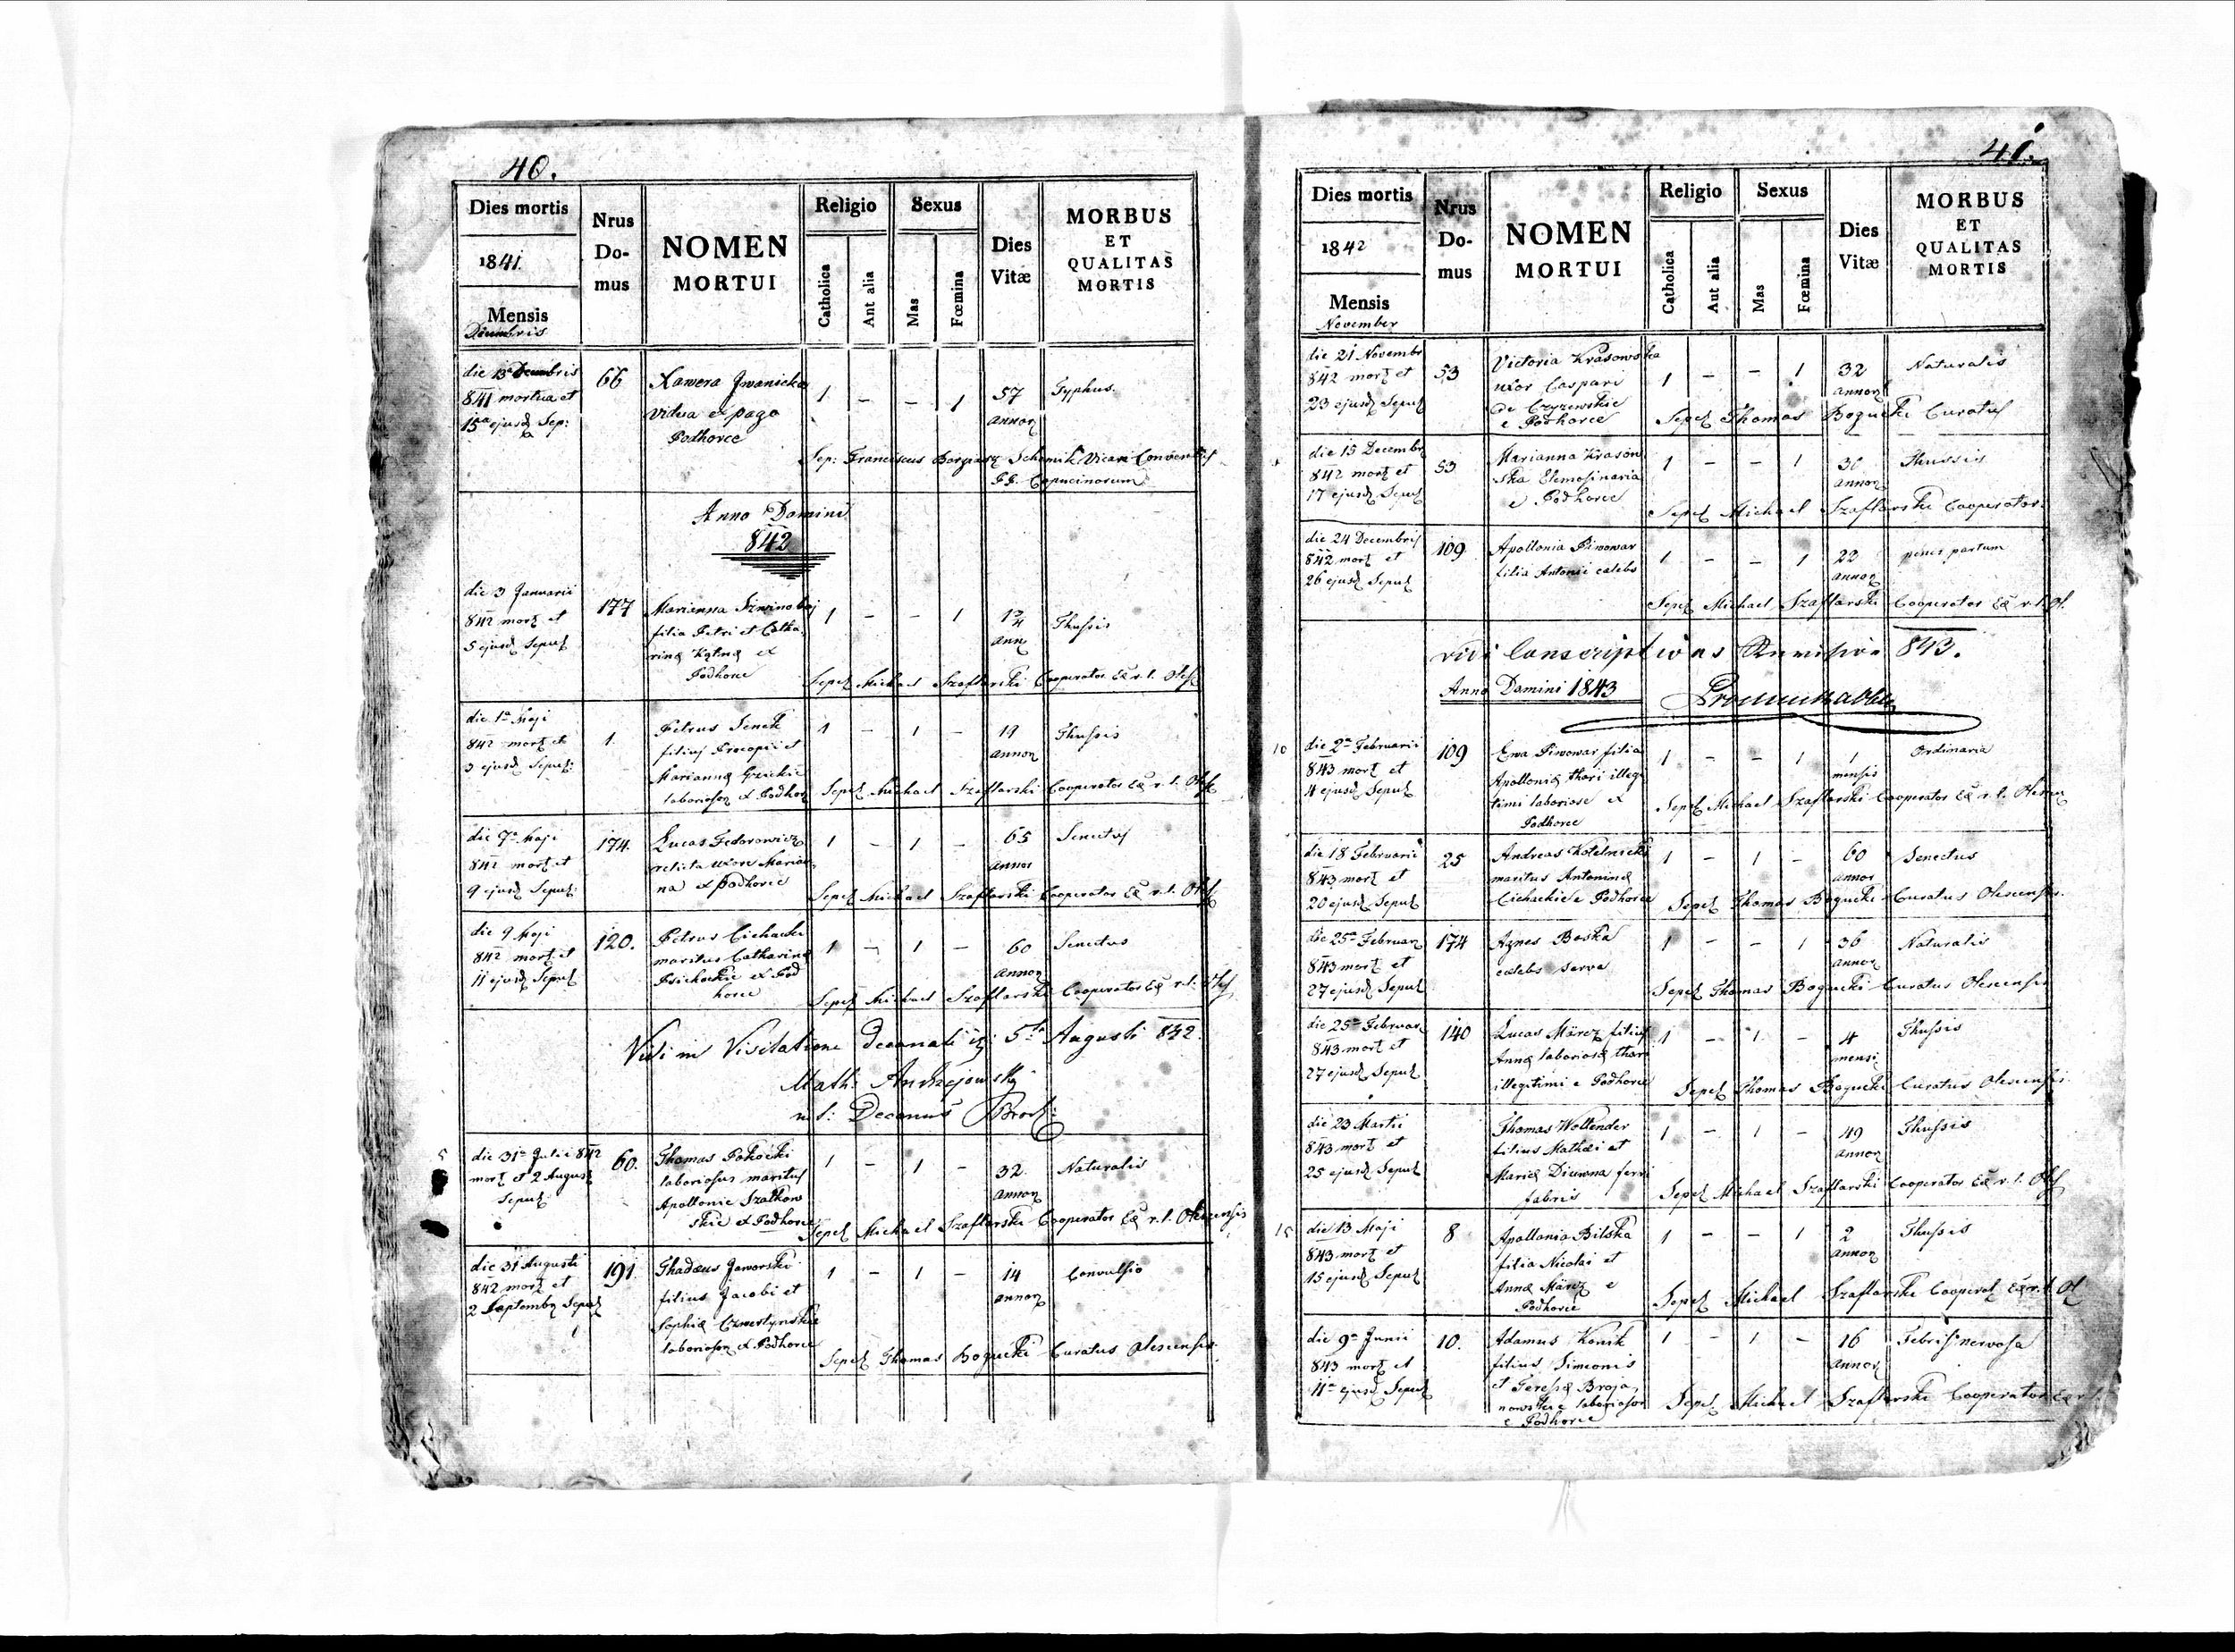 40.
Dies mortis
1841.
Mensis
Decembris
Nrus Do-mus
NOMEN
MORTUI
Religio
Catholica
Ant alia
Sexus
Mas
Fœmina
Dies
Vitæ
MORBUS
ET
QUALITAS
MORTIS
die 13a Decembris 66 Xawera Iwanicka 1 – – 1 57 Typhus.
841 mortua et vidua ex pago annor
15a ejusd Sep: Podhorce
Sep: Franciscus Borgiasz Vicari Conventus
Capucinorum
Anno Domini
842
die 3 Januarii 177 Marianna 1 – – 1 Thussis
842 mort et filia Petri et Catha
5 ejusd Sepult rinæ ex
Podhorce Sepel Michael Szaflarski Cooperator Ex r. l. Oles
die 1a Maji 1. Petrus Senek 1 – 1 – 19 Thussis
842 mort et filius Procopii et annor
3 ejusd Sepult: Mariannæ
laborioson ex Podhor Sepel Michael Szaflarski Cooperator Ex r. l. Oles
die 7a Maji 174. Lucas Fedorowicz 1 – 1 – 65 Senectus
842 mort et relicta uxore Marian annor
9 ejusd Sepult: na ex Podhorce Sepel Michael Szaflarski Cooperator Ex r. l. Oles
die 9 Maji 120. Petrus Cichacki 1 – 1 – 60 Senectus
842 mort et maritus Catharinæ annor
11 ejusd Sepul ex Pod
horce Sepel Michael Szaflarski Cooperator Ex r. l. Oles
Vidi in Visitatione Decanali 5ta Augusti 842.
Math: Andrzejowski
Decanus Brod:
5 die 31a Julii 842 60. Thomas Potocki 1 – 1 – 32. Naturalis
mort et 2 August laboriosus maritus annor
Sepul Apollonie Szatkow
skie ex Podhorce Sepel Michael Szaflarski Cooperator Ex r. l. Olescensis
die 31 Augusti 191 Thadæus Jaworski 1 – 1 – 14 Convulsio
842 mort et filius Jacobi et annor
2 Septembr Sepul Sophiæ Czwertynskie
laborioson ex Podhorce Sepel Thomas Bogucki Curatus Olescensis
41.
Dies mortis
1842
Mensis
November
Nrus
Do-
mus
NOMEN
MORTUI
Religio
Catholica
Aut alia
Sexus
Mas
Fœmina
Dies
Vitæ
MORBUS
ET
QUALITAS
MORTIS
die 21 Novembr 53 Victoria Krasowska 1 – – 1 32 Naturalis
842 mort et uxor Caspari annor
23 ejusd Sepul de Czyzewskie
e Podhorce Sepel Thomas Bogucki Curatus
die 15 Decembr 53 Marianna Krason 1 – – 1 30 Thussis
842 mort et ska Elemosinaria annor
17 ejusd Sepul e Podhorce
Sepel Michael Szaflarski Cooperator.
die 24 Decembris 109 Apollonia Piwowar 1 – – 1 22 penes partum
842 mort et filia Antonii celebs annor
26 ejusd Sepul
Sepel Michael Szaflarski Cooperator Ex r. l. Ol.
vidi Conscriptions 843.
Anno Domini 1843
10 die 2a Februarii 109 Ewa Piwowar filia 1 – – 1 1 Ordinaria
843 mort et Apolloniæ thori illegi mensis
4 ejusd Sepul timi laboriose ex
Podhorce Sepel Michael Szaflarski Cooperator Ex r. l. Olescen
die 18 Februarii 25 Andreas Kotelnicki 1 – 1 – 60 Senectus
843 mort et maritus Antoninæ annor
20 ejusd Sepul Cichackie e Podhorce Sepel Thomas Bogucki Curatus Olescensis.
die 25a Februar 174 Agnes Boska 1 – – 1 36 Naturalis
843 mort et celebs serva annor
27 ejusd Sepul Sepel Thomas Bogucki Curatus Olescensis
die 25a Februar 140 Lucas Märcz filius 1 – 1 – 4 Thussis
843 mort et Annæ laboriosæ thori mensi
27 ejusd Sepul illegitimi e Podhorce Sepel Thomas Bogucki Curatus Olescensis.
die 23 Martii Thomas Wollender 1 – 1 – 49 Thussis
843 mort et filius Mathæi et annor
25 ejusd Sepul Mariæ ferri
fabris Sepel Michael Szaflarski Cooperator Ex r. l. Oles
15 die 13 Maji 8 Apollonia Bilska 1 – – 1 2 Thussis
843 mort et filia Nicolai et annor
15 ejusd Sepul Annæ Märcz e
Podhorce Sepel Michael Szaflarski Cooperat Ex r. l. Ol
die 9a Junii 10. Adamus Konik 1 – 1 – 16 Febris nervosa
843 mort et filius Simeonis annor
11a ejusd Sepul et Teresæ Broja,
nowskie laborioson Sepel Michael Szaflarski Cooperator Ex r. l.
e Podhorce